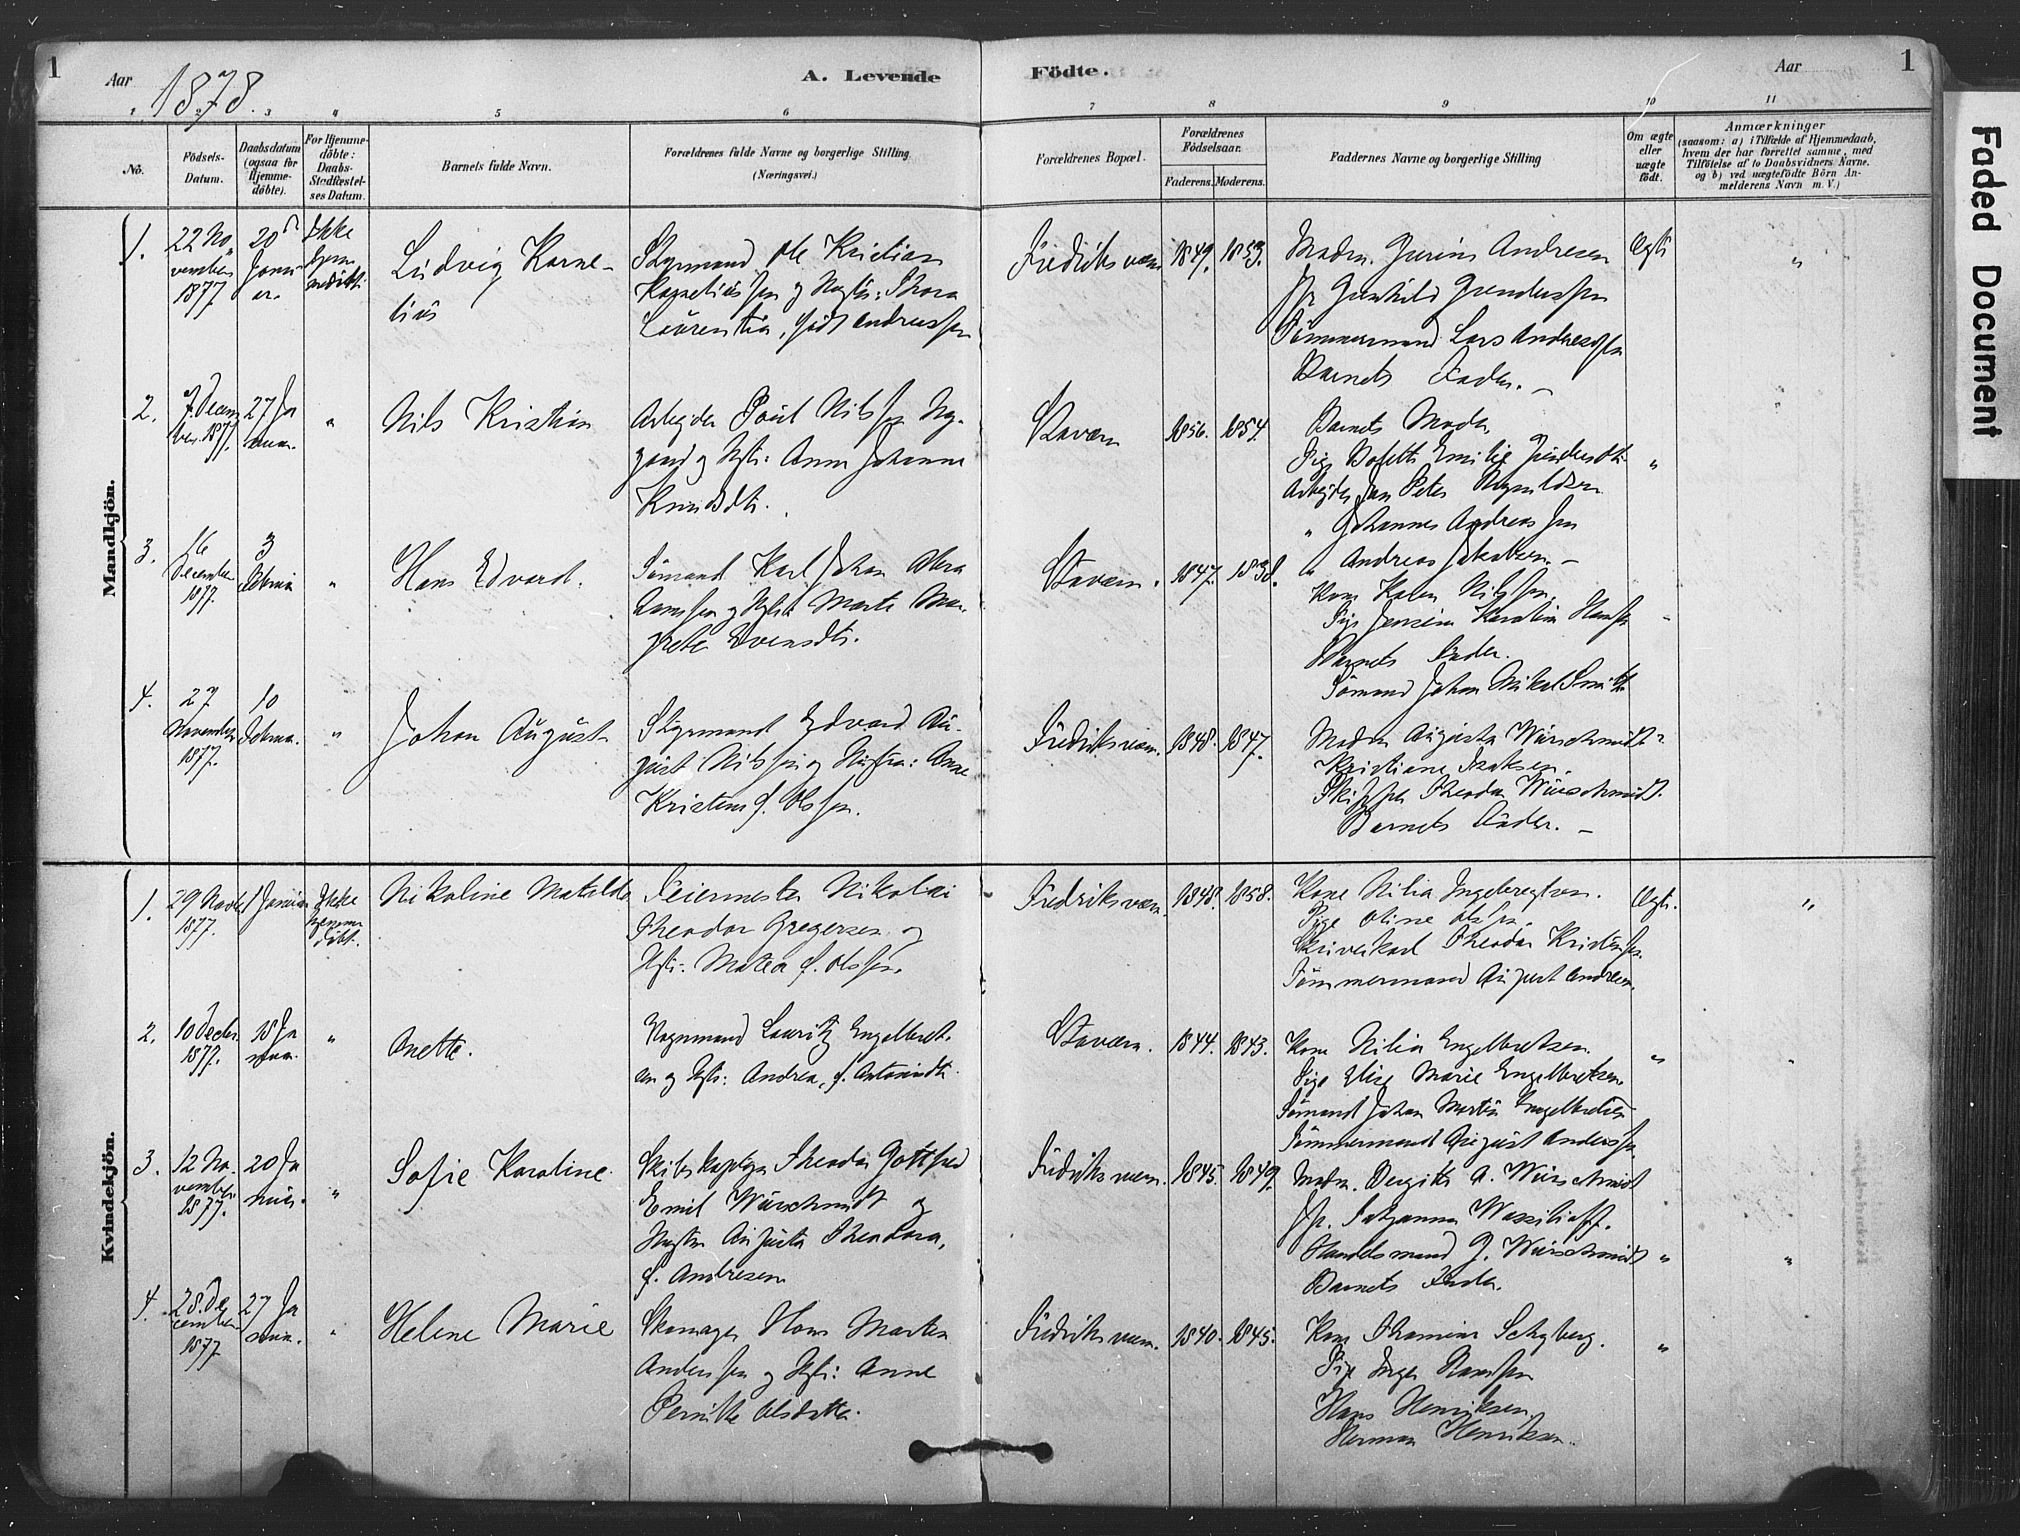 1
Aar
1878.
A. Levende
Födte.
Aar
1
1.
2.
3
4
5
6
7
8
9
10
11
No.
Födsels-
Datum.
Daabsdatum
(ogsaa for
Hjemme-
döbte).
For Hjemme-
döbte:
Daabs-
Stadfæstel-
ses Datum.
Barnets fulde Navn.
Forældrenes fulde Navne og borgerlige Stilling
(Næringsvei.)
Forældrenes Bopæl.
Forældrenes
Födselsaar.
Faderens.
Moderens.
Faddernes Navne og borgerlige Stilling
Om ægte
eller
uægte
födt.
Anmærkninger
(saasom: a) i Tilfælde af Hjemmedaab,
hvem der har forrettet samme, med
Tilföielse af to Daabsvidners Navne.
og b) ved uægtefödte Börn An-
melderens Navn m. V.)
Mandkjön.
1.
22 No-
vember
1877
20
Janu-
ar.
Ikke
hjem
medöbt
Ludvig Korne-
lius
Styrmand Ole Kristian
Kornelius sen og Hustr: Thora
Laurentia, født Andreassen
Fredriksværn
1849.
1853.
Madm. Andresen
Jfr Gunhild
Tømmermand Lars Andreassen
Barnets Fader. —
Ægte
"
2.
7. Decem
ber. 1877.
27 Ja
nuar.
"
Nils Kristian
Arbejder Poul Nilssen Ny-
gaard og Hstr: Anne Johanne
Knudsdtr.
Stavern
1856.
1854.
Barnets Moder.
Pige Emilie
Arbejder Jan Peter
" Johannes Andreassen
" Andreas Jakobsen. —
"
3.
16
December
1877.
3
Februar
"
Hans Edvard.
Sømand Karl Johan Abra
hamssen og Hstr: Marte Mar-
grete Evensdtr.
Stavern.
1847.
1838.
Kone Karen Nilssen.
Pige Jensine Karoline Hanssen
Barnets Fader.
Sømand Johan Mikal Smith
4.
27
November
1877.
10
Februar.
"
Johan August
Styrmand Edvard Au-
gust Nilssen og Hustru: Anne
Kristine f. Olssen.
Fredriksværn.
1848.
1847.
Madm Augusta Würschmidt
Kristiane Isaksen.
Skipper Theodor Würschmidt.
Barnets Fader. —
Kvindekjön.
1.
29 Novbr
1877.
1 Januar
Ikke
hjemme
döbt.
Nikoline Matilde
Feiermester Nikolai
Theodor Gregersen og
Hstr: Matea f. Olssen.
Fredriksværn.
1848.
1858.
Kone Nilia Ingebregtsen.
Pige Oline Olssen.
Skriverkarl Theodor Kristenssen
Tømmermand August Andresen.
Ægte.
"
2.
10 Decbr.
1877.
13 Ja
nuar.
"
Anette.
Vognmand Lauritz Engelbret-
sen og Hstr: Andrea, f. Antonisdtr.
Stavern.
1844.
1843.
Kone Nilia Engelbretsen.
Pige Elise Marie Engelbretsen.
Sømand Johan Martin Engelbretsen
Tømmermand August Anderssen
"
3.
12 No-
vember
1877.
20 Ja
nuar.
"
Sofie Karoline.
Skibskaptein Theodor Gottfred
Emil Würschmidt og
Hustru Augusta Theodora,
f. Andresen
Fredriksværn.
1845.
1849.
Madm. Bergitte A. Würschmidt
Jfr. Johanna Wassiliaff.
Handelsmand G. Würschmidt
Barnets Fader.
"
"
4.
28. De
cember
1877
27 Ja
nuar.
"
Helene Marie
Skomager Hans Martin
Anderssen og Hstr: Anne
Pernille Olsdatter.
Fredriksværn.
1840.
1845.
Kone Thomine Schyberg.
Pige Inger Hanssen
Hans Henriksen
Herman Henriksen.
"
Faded Document